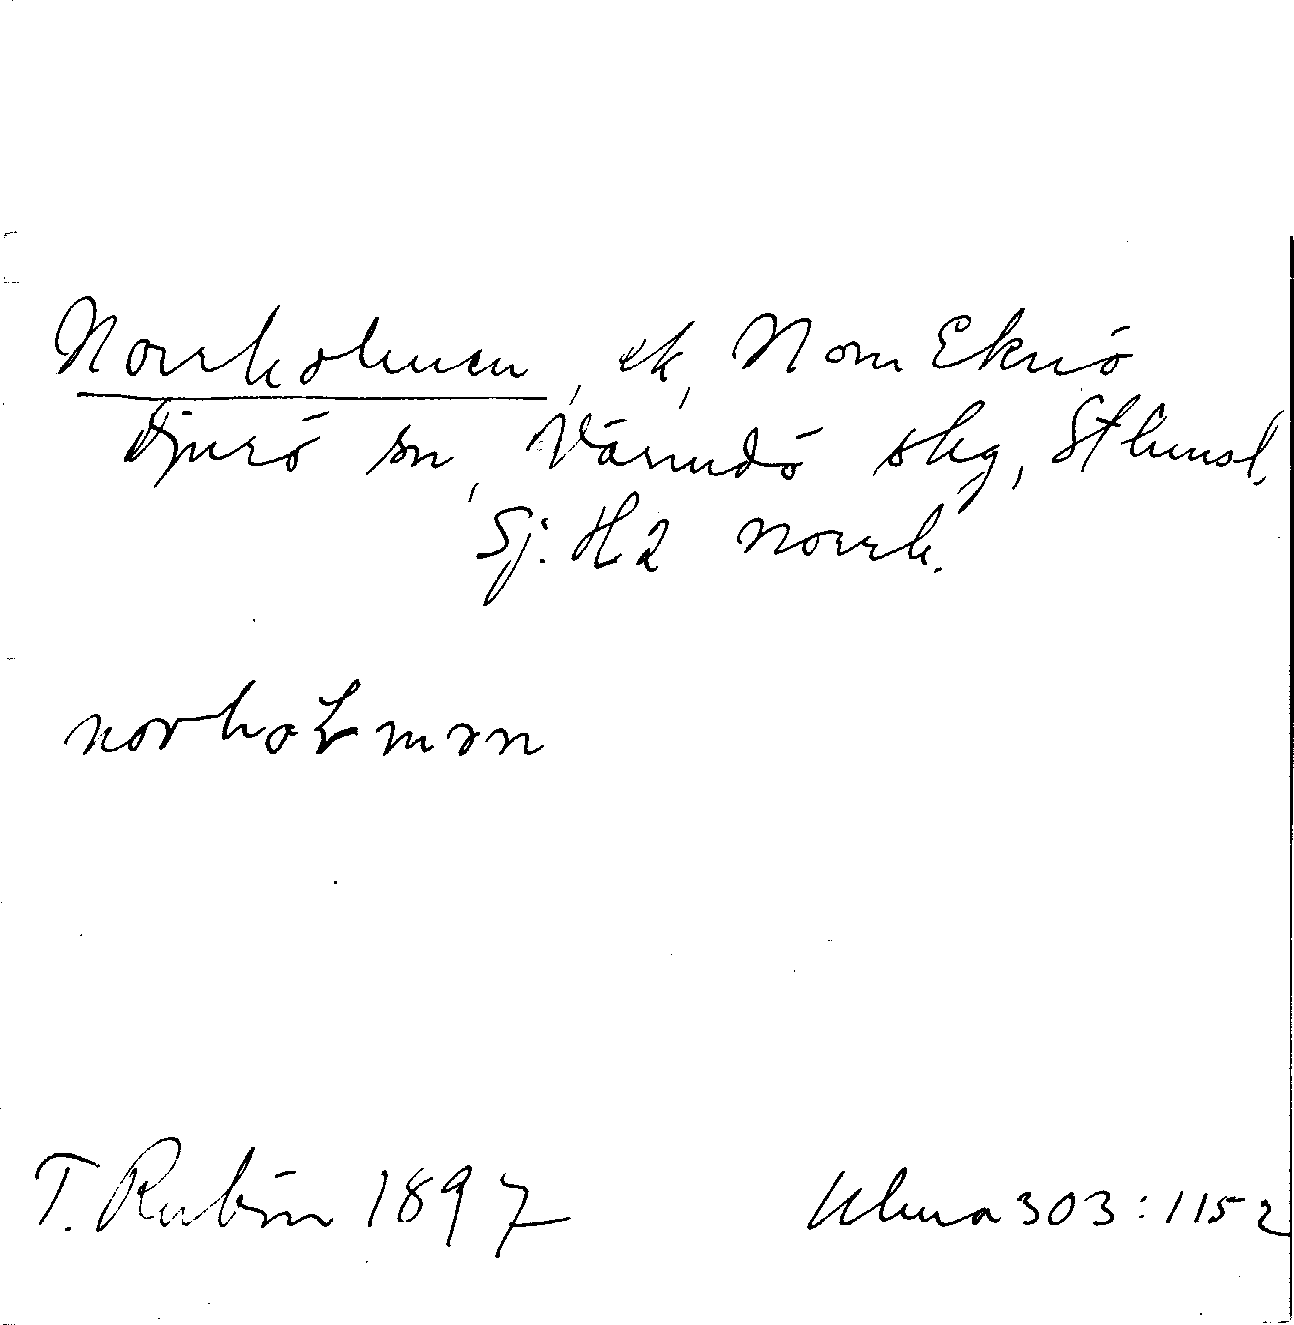 Norrholmen, sk, N om Eknö
Djurö sn, Värmdö skg, Sthmsl.
Sj. H2 Norrh.
norholmən
T. Rubin 1897 Ulma 303:1152